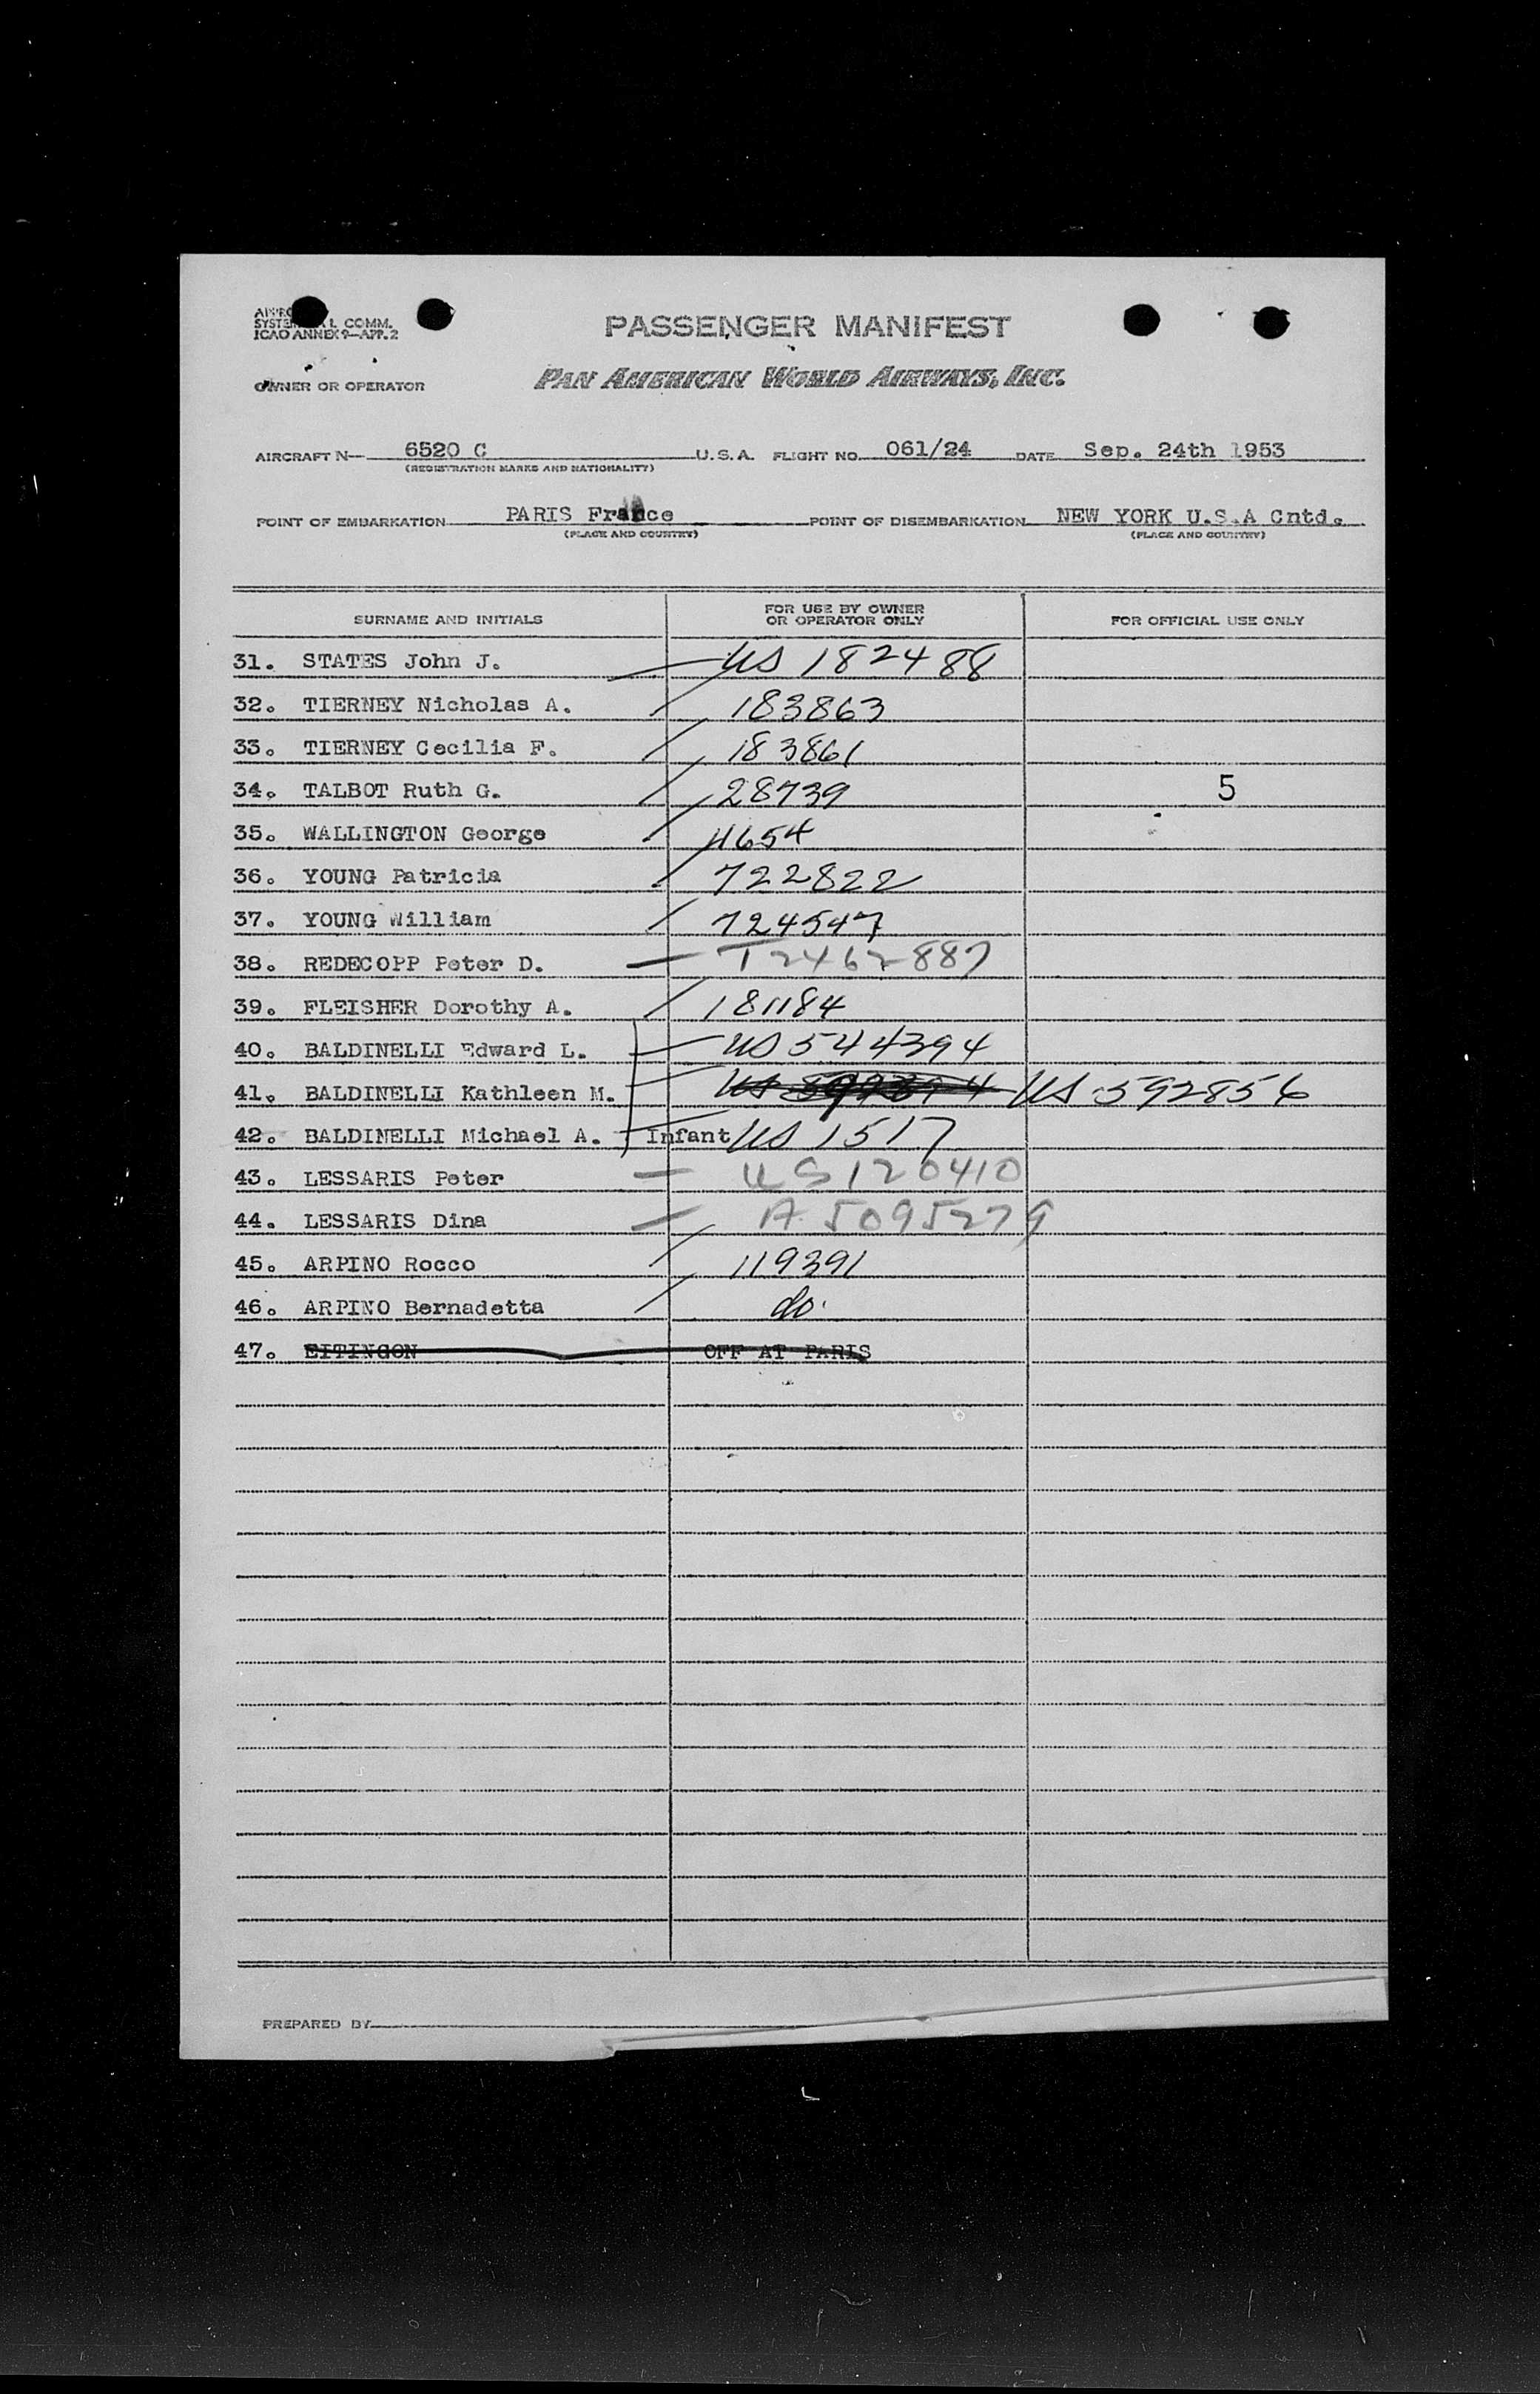 SYSTE L COMM.
ICAO ANNEX 9—APP. 2
PASSENGER MANIFEST
OWNER OR OPERATOR PAN AMERICAN WORLD AIRWAYS, INC.
AIRCRAFT N— 6520 C U.S.A. FLIGHT NO. 061/24 DATE Sep. 24th 1953
(REGISTRATION MARKS AND NATIONALITY)
POINT OF EMBARKATION PARIS France POINT OF DISEMBARKATION NEW YORK U.S.A Cntd.
(PLACE AND COUNTRY) (PLACE AND COUNTRY)
SURNAME AND INITIALS FOR USE BY OWNER OR OPERATOR ONLY FOR OFFICIAL USE ONLY
31. STATES John J. US 182488
32. TIERNEY Nicholas A. 183863
33. TIERNEY Cecilia F. 183861
34. TALBOT Ruth G. 28739 5
35. WALLINGTON George 4654
36. YOUNG Patricia 722822
37. YOUNG William 724547
38. REDECOPP Peter D. T2462887
39. FLEISHER Dorothy A. 181184
40. BALDINELLI Edward L. US 544394
41. BALDINELLI Kathleen M. US 592856
42. BALDINELLI Michael A. Infant US 1517
43. LESSARIS Peter US 120410
44. LESSARIS Dina A 5095279
45. ARPINO Rocco 119391
46. ARPINO Bernadetta do.
47. EITINGON OFF AT PARIS
PREPARED BY